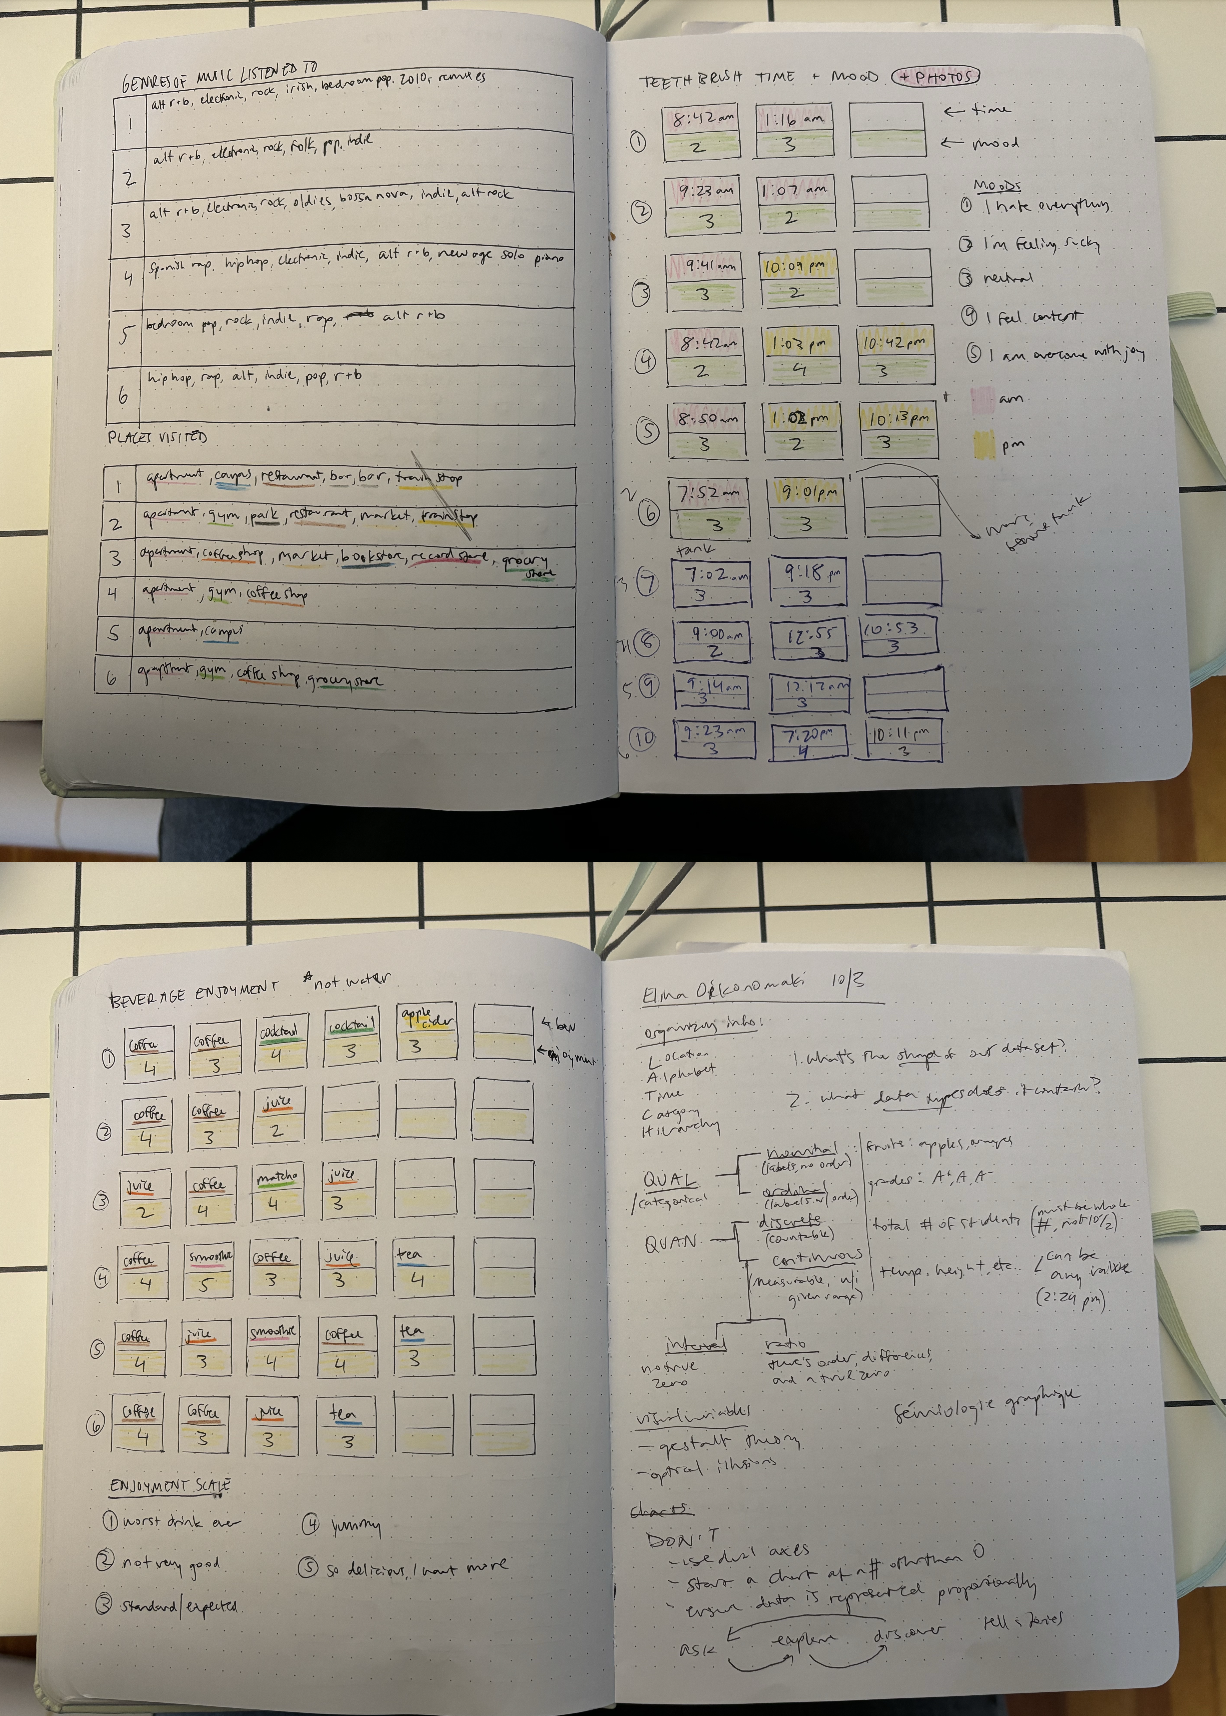 GENRES OF MUIC LISTENED TO
1 alt r+b, electronic, rock, irish, bedroom pop, 2010s remixes
2 alt r+b, electronic, rock, folk, pop, indie
3 alt r+b, electronic, rock, oldies, bossa nova, indie, alt rock
4 Spanish rap, hiphop, electronic, indie, alt r+b, new age solo piano
5 bedroom pop, rock, indie, rap, alt r+b
6 hiphop, rap, alt, indie, pop, r+b
PLACES VISITED
1 apartment, campus, restaurant, bar, bar, train stop
2 apartment, gym, park, restaurant, market, train stop
3 apartment, coffee shop, market, bookstore, record store, grocery store
4 apartment, gym, coffee shop
5 apartment, campus
6 apartment, gym, coffee shop, grocery store
TEETH BRUSH TIME + MOOD + PHOTOS
1 8:42 am 1:16 am ← time
2 3 ← mood
2 9:23 am 1:07 am
3 2
3 9:41 am 10:09 pm
3 2
4 8:42 am 1:03 pm 10:42 pm
2 4 3
5 8:50 am 1:02 pm 10:13 pm
3 2 3
2 6 7:52 am 9:01 pm
3 3
tank
3 7 7:02 am 9:18 pm
3 3
4 8 9:00 am 12:55 10:53
2 3 3
5 9 9:14 am 12:12 am
3 3
10 9:23 am 7:20 pm 10:11 pm
3 4 3
MOODS
1 I hate everything
2 I'm feeling sucky
3 neutral
4 I feel content
5 I am overcome with joy
am
pm
tank
BEVERAGE ENJOYMENT *not water
1 coffee coffee cocktail cocktail apple cider ← bev
4 3 4 3 3 ← enjoyment
2 coffee coffee juice
4 3 2
3 juice coffee matcha juice
2 4 4 3
4 coffee smoothie coffee juice tea
4 5 3 3 4
5 coffee juice smoothie coffee tea
4 3 4 4 3
6 coffee coffee juice tea
4 3 3 3
ENJOYMENT SCALE
1 worst drink ever
2 not very good
3 standard/expected
4 yummy
5 so delicious, I want more
Elma Oikonomaki 10/3
organizing info:
Location
Alphabet
Time
Category
Hierarchy
1. what's the shape of our dataset?
2. what data types does it contain?
QUAL
/categorical
nominal: fruits: apples, oranges
(labels, no order)
ordinal grades: A+, A, A-
(labels w/ order)
QUAN
discrete total # of students (must be whole #, not 10 1/2)
(countable)
continuous temp, height, etc. (can be any value (2:24 pm)
(measurable, w/i given range)
interval
no true zero
ratio
there's order, differences, and a true zero
visual variables
- gestalt theory
- optical illusions
Sémiologie graphique
charts
DON'T
- use dual axes
- start a chart at a # other than 0
- ensure data is represented proportionally
ask explore discover tell stories